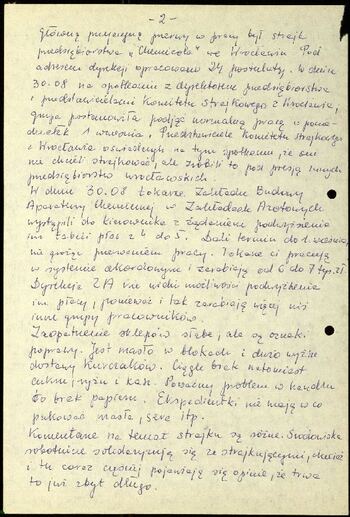 - 2 -
Główną przyczyną przerwy w pracy był strajk
przedsiębiorstwa "Chemicola" we Wrocławiu. Pod
adresem dyrekcji opracowano 24 postulaty. W dniu
30.08 na spotkaniu z dyrektorem przedsiębiorstwa
i przedstawicielami Komitetu Strajkowego z Wrocławia,
grupa postanowiła podjąć normalną pracę w ponie-
działek 1 września. Przedstawiciele Komitetu Strajkowego
z Wrocławia oświadczyli na tym spotkaniu, że oni
nie chcieli strajkować, ale zrobili to pod presją innych
przedsiębiorstw wrocławskich.
W dniu 30.08 tokarze Zakładu Budowy
Aparatury Chemicznej w Zakładach Azotowych
wystąpili do kierownika z żądaniem podwyższenia
im tabeli płac z 4 do 5. Dali termin do 1. września,
nie grożąc przerwaniem pracy. Tokarze ci pracują
w systemie akordowym i zarabiają od 6 do 7 tys. zł.
Dyrekcja ZA nie widzi możliwości podwyższenia
im płacy, ponieważ i tak zarabiają więcej niż
inne grupy pracowników.
Zaopatrzenie sklepów słabe, ale są oznaki
poprawy. Jest masło w blokach i dużo wyższe
dostawy kurczaków. Ciągle brak natomiast
cukru, ryżu i kasz. Poważny problem w handlu
to brak papieru. Ekspedientki nie mają w co
pakować masła, sera itp.
Komentarze na temat strajku są różne. Środowiska
robotnicze solidaryzują się ze strajkującymi, chociaż
i tu coraz częściej pojawiają się opinie, że trwa
to już zbyt długo.